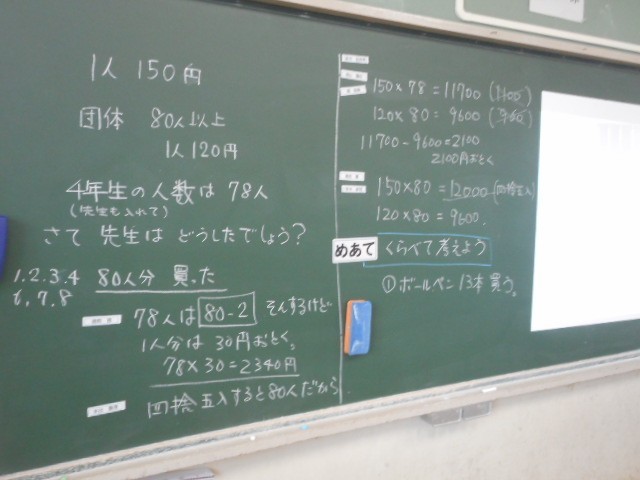 1人 150円
団体 80人以上
1人120円
4年生の人数は 78人
(先生も入れて)
さて 先生は どうしたでしょう?
1.2.3.4 80人分 買った
6.7.8
78人は 80-2 そんするけど
1人分は 30円おとく。
78×30=2340円
四捨五入すると80人だから.
150×78=11700
120×80=9600
11700-9600=2100
2100円おとく
150×80=12000(四捨五入)
120×80=9600.
めあて くらべて考えよう
①ボールペン 13本 買う。